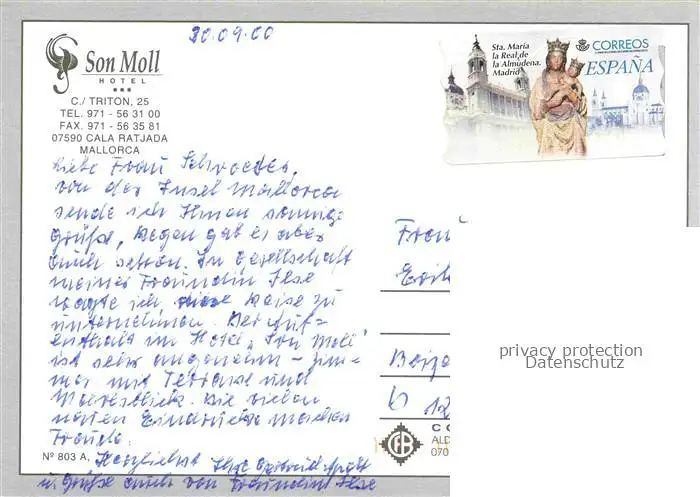 30.09.00
Son Moll
HOTEL
***
C./ TRITON, 25
TEL. 971 - 56 31 00
FAX. 971 - 56 35 81
07590 CALA RATJADA
MALLORCA
Sta. María
la Real de
la Almudena.
Madrid
CORREOS
ESPAÑA
Liebe Frau Schroeder,
von der Insel Mallorca
sende ich Ihnen sonnige
Grüße, Regen gab es aber
auch schon. In Gesellschaft
meiner Freundin Ilse
wagte ich diese Reise zu
unternehmen. Der Auf=
enthalt im Hotel „Son Moll"
ist sehr angenehm - Zim=
mer mit Terrasse und
Meeresblick. Die vielen
neuen Eindrücke machen
Freude.
Herzlichst Ihre
u. Grüße auch von Freundin Ilse
Frau
privacy protection
Datenschutz
12
Nº 803 A.
CO
ALD
070